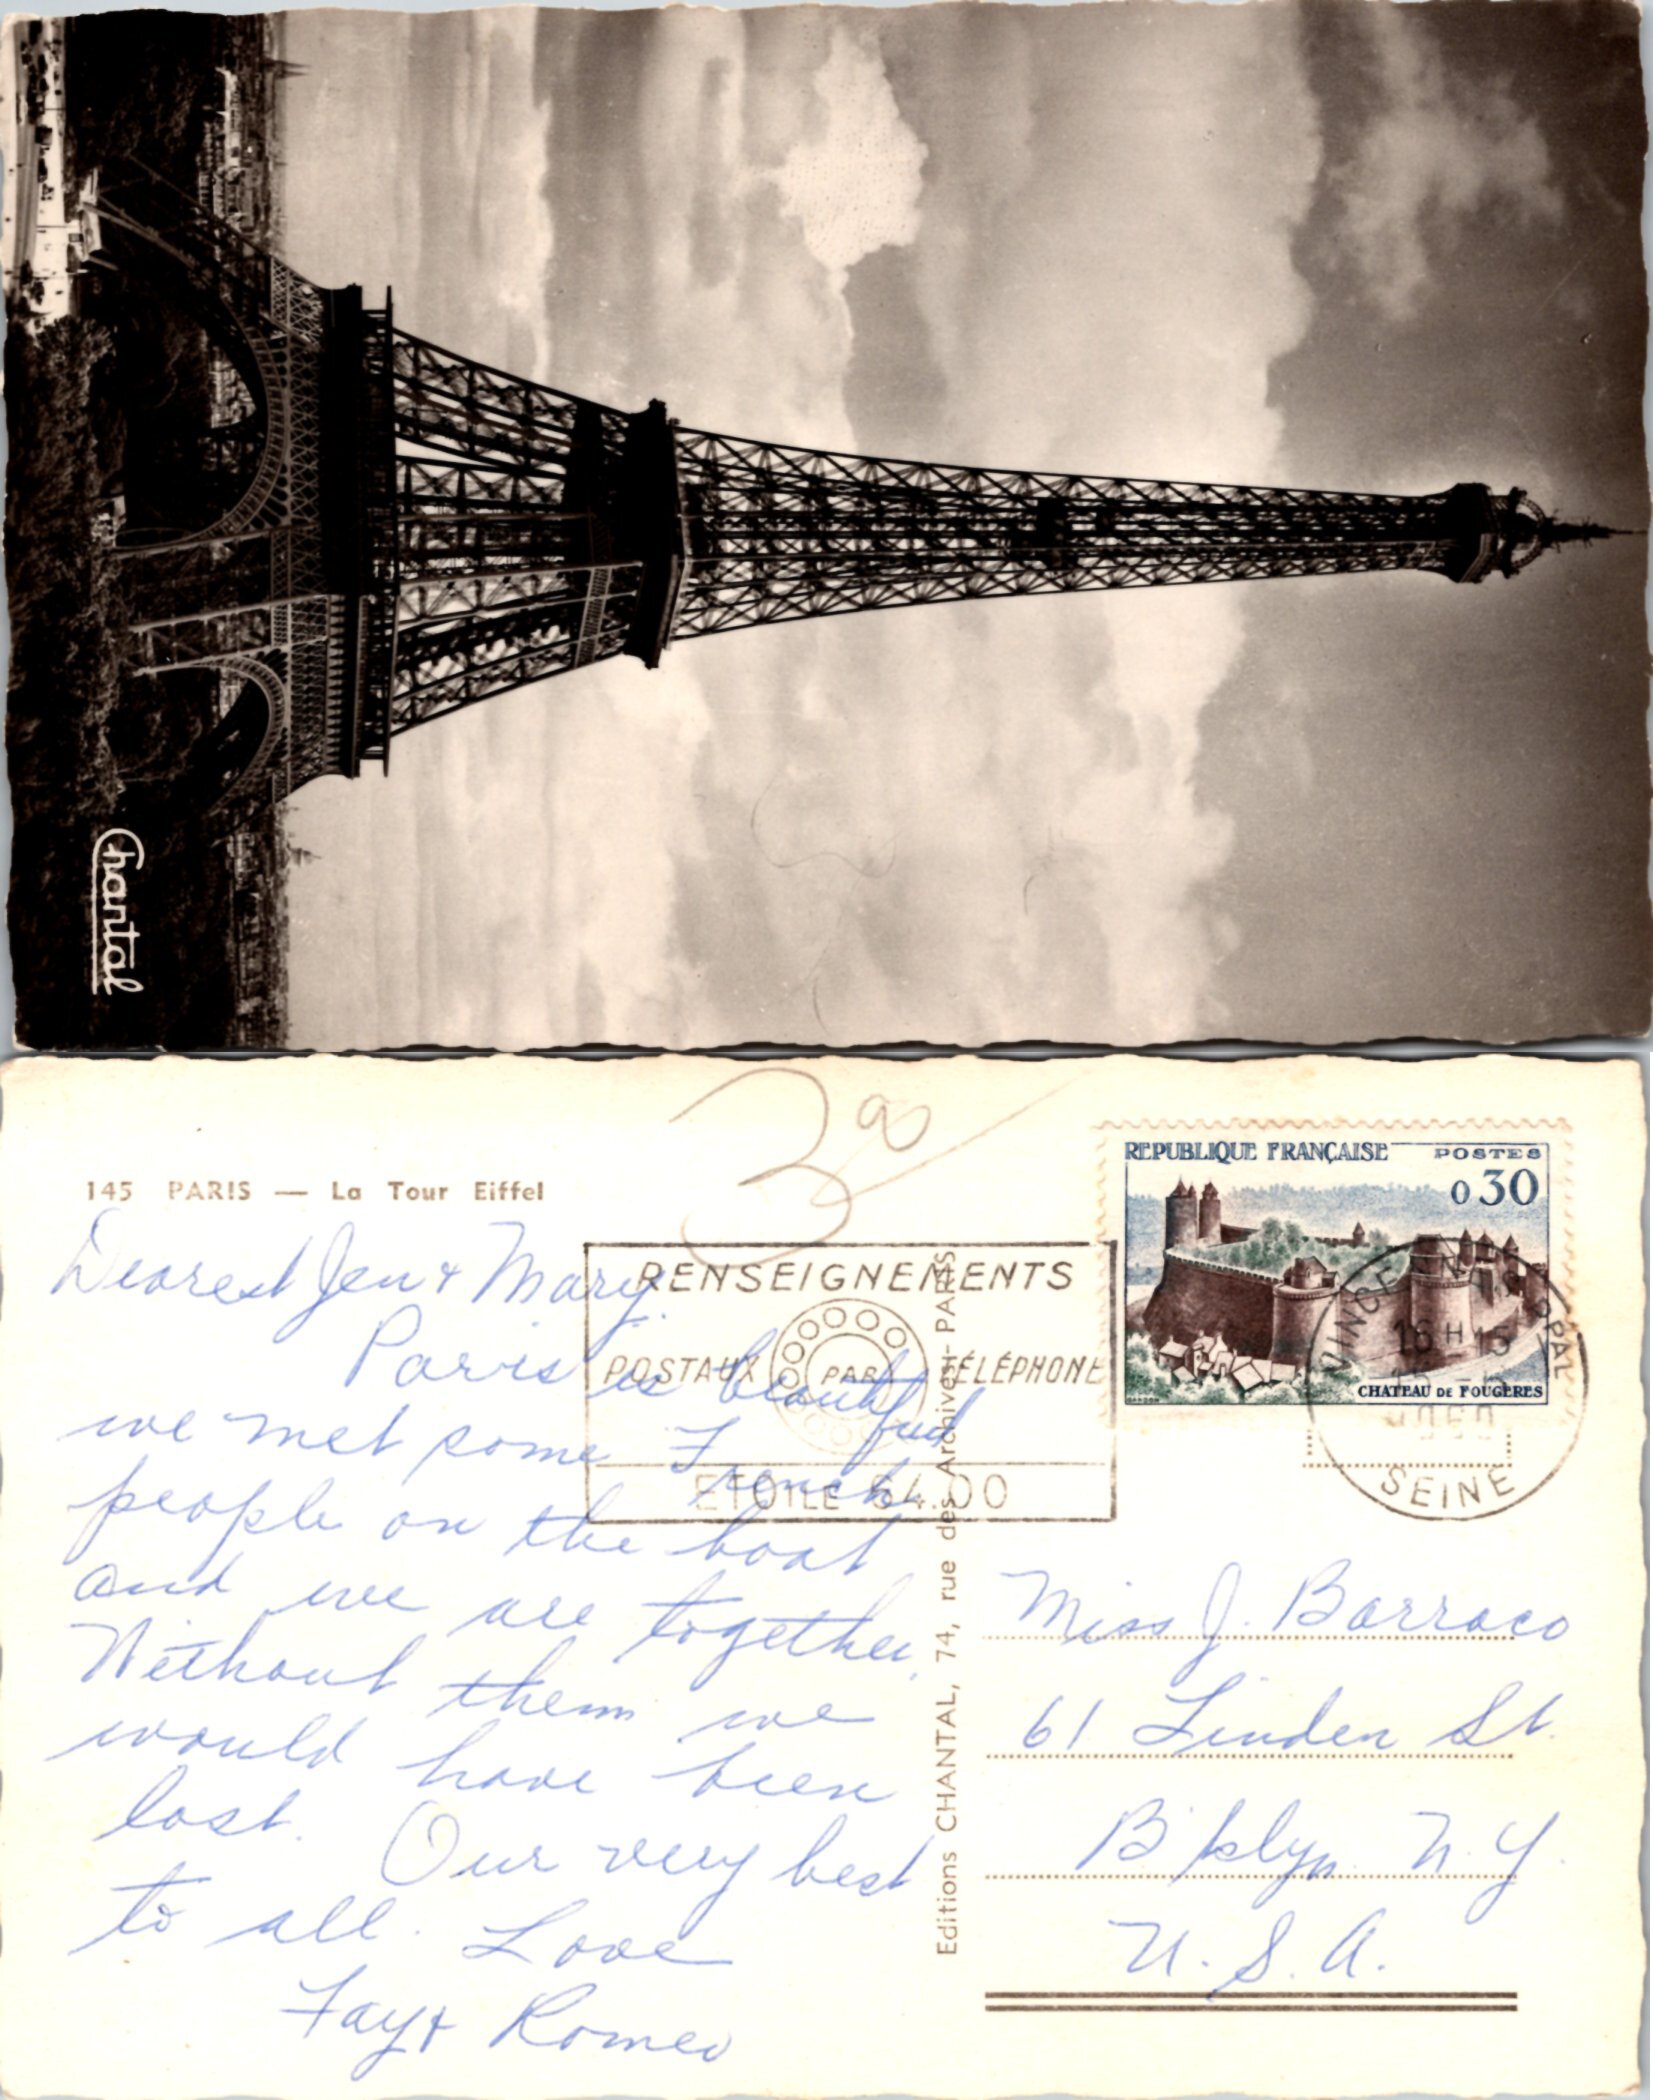 Chantal
145 PARIS — La Tour Eiffel
30
Dearest Jen & Mary.
Paris is beautiful
we met some French
people on the boat
and we are together.
Without them we
would have been
lost. Our very best
to all. Love
Fay & Romeo
RENSEIGNEMENTS
POSTAUX PAR TÉLÉPHONE
ETOILE 64.00
Editions CHANTAL, 74, rue des Archives - PARIS
REPUBLIQUE FRANÇAISE POSTES
0 30
CHATEAU DE FOUGERES
GANDON
VINCENNES PPAL
16 H 15
1960
SEINE
Miss J. Barraco
61 Linden St.
B'klyn N.Y.
U.S.A.